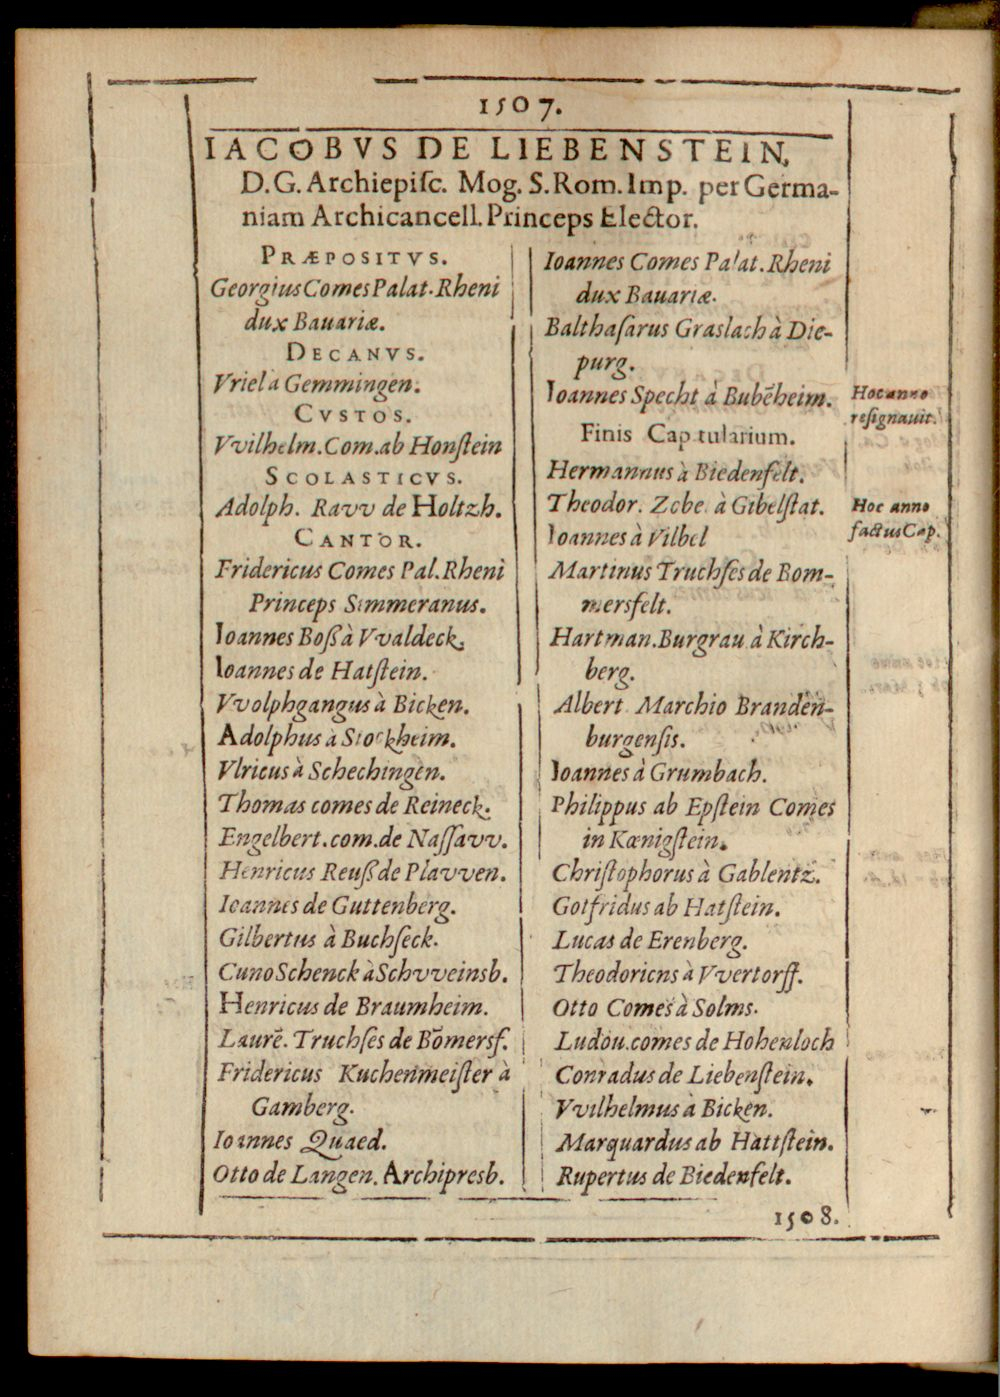 1507.
IACOBVS DE LIEBENSTEIN,
D.G. Archiepiſc. Mog. S. Rom. Imp. per Germa-
niam Archicancell. Princeps Elector.
PRÆPOSITVS.
Georgius Comes Palat. Rheni
dux Bauariæ.
DECANVS.
Vriel a Gemmingen.
CVSTOS.
Vvilhelm. Com. ab Honſtein
SCOLASTICVS.
Adolph. Ravv de Holtzh.
CANTOR.
Fridericus Comes Pal. Rheni
Princeps Simmeranus.
Ioannes Boß à Vvaldeck.
Ioannes de Hatſtein.
Vvolphgangus à Bicken.
Adolphus à Stockheim.
Vlricus à Schechingen.
Thomas comes de Reineck.
Engelbert. com. de Naſſavv.
Henricus Reuß de Plavven.
Ioannes de Guttenberg.
Gilbertus à Buchſeck.
Cuno Schenck à Schvveinsb.
Henricus de Braumheim.
Laurē. Truchſes de Bōmersf.
Fridericus Kuchenmeiſter à
Gamberg.
Ioannes Quaed.
Otto de Langen. Archipresb.
Ioannes Comes Palat. Rheni
dux Bauariæ.
Balthaſarus Graslach à Die-
purg.
Ioannes Specht à Bubēheim.
Hoc anno
reſignauit.
Finis Capitularium.
Hermannus à Biedenfelt.
Theodor. Zobe. à Gibelſtat.
Hoc anno
factus Cap.
Ioannes à Vilbel
Martinus Truchſes de Bom-
mersfelt.
Hartman. Burgrau. à Kirch-
berg.
Albert. Marchio Branden-
burgenſis.
Ioannes à Grumbach.
Philippus ab Epſtein Comes
in Kœnigſtein.
Chriſtophorus à Gablentz.
Gotfridus ab Hatſtein.
Lucas de Erenberg.
Theodoricns à Vvertorff.
Otto Comes à Solms.
Ludou. comes de Hohenloch
Conradus de Liebenſtein.
Vvilhelmus à Bicken.
Marquardus ab Hattſtein.
Rupertus de Biedenfelt.
1508.